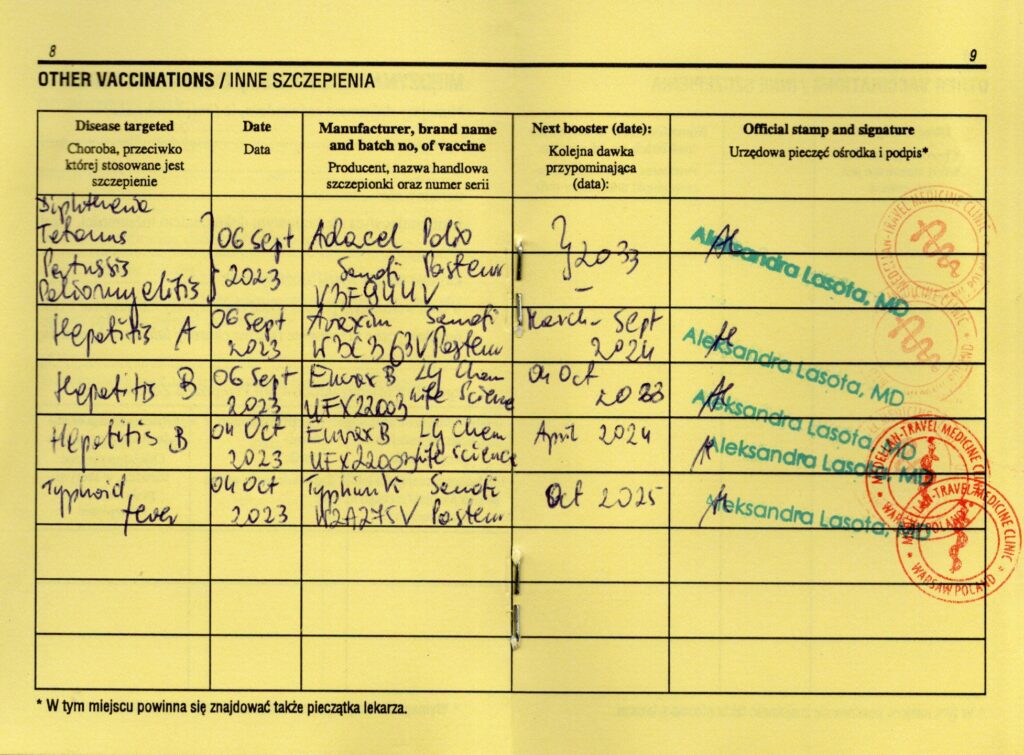 8
9
OTHER VACCINATIONS / INNE SZCZEPIENIA
Disease targeted
Choroba, przeciwko
której stosowane jest
szczepienie
Date
Data
Manufacturer, brand name
and batch no, of vaccine
Producent, nazwa handlowa
szczepionki oraz numer serii
Next booster (date):
Kolejna dawka
przypominająca
(data):
Official stamp and signature
Urzędowa pieczęć ośrodka i podpis*
Diphtheria
Tetanus
Pertussis
Poliomyelitis
06 Sept
2023
Adacel Polio
Sanofi Pasteur
V3F944V
2033
Aleksandra Lasota, MD
Hepatitis A
06 Sept
2023
Avaxim Sanofi
W3C363V Pasteur
March - Sept
2024
Aleksandra Lasota, MD
Hepatitis B
06 Sept
2023
Euvax B LG Chem
UFX22003 Life Science
04 Oct
Aleksandra Lasota, MD
Hepatitis B
04 Oct
2023
Euvax B LG Chem
UFX22003 Life Science
April 2024
Aleksandra Lasota, MD
Typhoid
fever
04 Oct
2023
Typhim Vi Sanofi
W2A275V Pasteur
Oct 2025
Aleksandra Lasota, MD
TRAVEL MEDICINE CLINIC
WARSAW POLAND
* W tym miejscu powinna się znajdować także pieczątka lekarza.